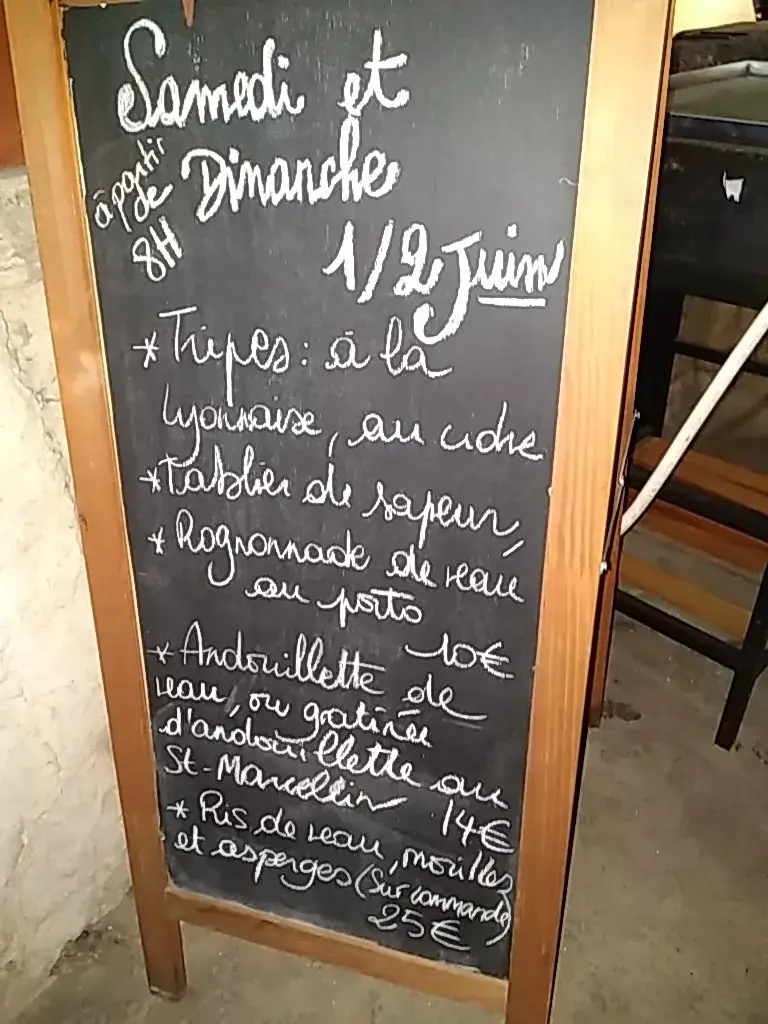 Samedi et
à partir
de
8H
Dimanche
1/2 Juin
* Tripes : à la
lyonnaise, au cidre
* Tablier de sapeur,
* Rognonnade de veau
au porto
10€
* Andouillette de
veau, ou gratinée
d'andouillette au
St-Marcellin 14€
* Ris de veau, morilles
et asperges (sur commande)
25€